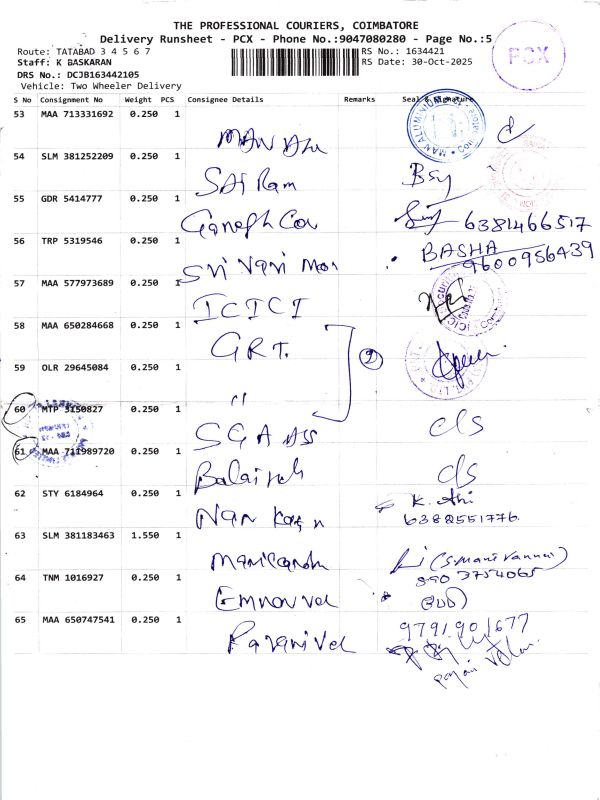 THE PROFESSIONAL COURIERS, COIMBATORE
Delivery Runsheet - PCX - Phone No.:9047080280 - Page No.:5
Route: TATABAD 3 4 5 6 7
RS No.: 1634421
Staff: K BASKARAN
RS Date: 30-Oct-2025
DRS No.: DCJB163442105
Vehicle: Two Wheeler Delivery
PCX
S No Consignment No Weight PCS Consignee Details Remarks Seal & Signature
53 MAA 713331692 0.250 1
54 SLM 381252209 0.250 1
Sai Ram
55 GDR 5414777 0.250 1
Ganesh 6381466517
56 TRP 5319546 0.250 1
BASHA
Sri Vari 9600956439
57 MAA 577973689 0.250 1
ICICI
58 MAA 650284668 0.250 1
GRT. 2
59 OLR 29645084 0.250 1
"
60 MTP 3150827 0.250 1
c/s
61 MAA 711989720 0.250 1
c/s
62 STY 6184964 0.250 1
K. Athi
6382551776
63 SLM 381183463 1.550 1
(S. Manivannan)
8903754065
64 TNM 1016927 0.250 1
65 MAA 650747541 0.250 1
9791901677
Palanivel